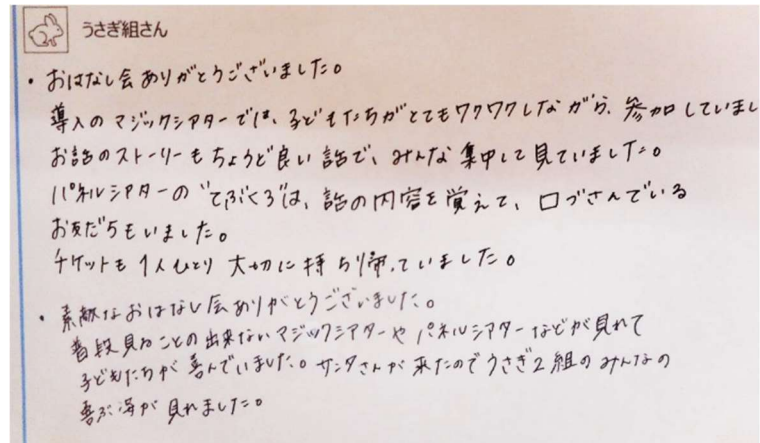 うさぎ組さん
・おはなし会ありがとうございました。
導入のマジックシアターでは、子どもたちがとてもワクワクしながら、参加していまし
お話のストーリーもちょうど良い話で、みんな集中して見ていました。
パネルシアターの"てぶくろ"は、話の内容を覚えて、口づさんでいる
お友だちもいました。
チケットも1人ひとり大切に持ち帰っていました。
・素敵なおはなし会ありがとうございました。
普段見ることの出来ないマジックシアターや パネルシアターなどが見れて
子どもたちが喜んでいました。サンタさんが来たのでうさぎ2組のみんなの
喜ぶ姿が見れました。